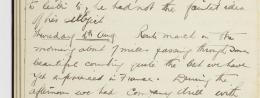 to listen to, he had not the faintest idea
of his subject
Thursday 6th Aug Route march in the
morning about 9 miles passing through some
beautiful country quite the best we have
yet experienced in France. During the
afternoon we had Company drill with